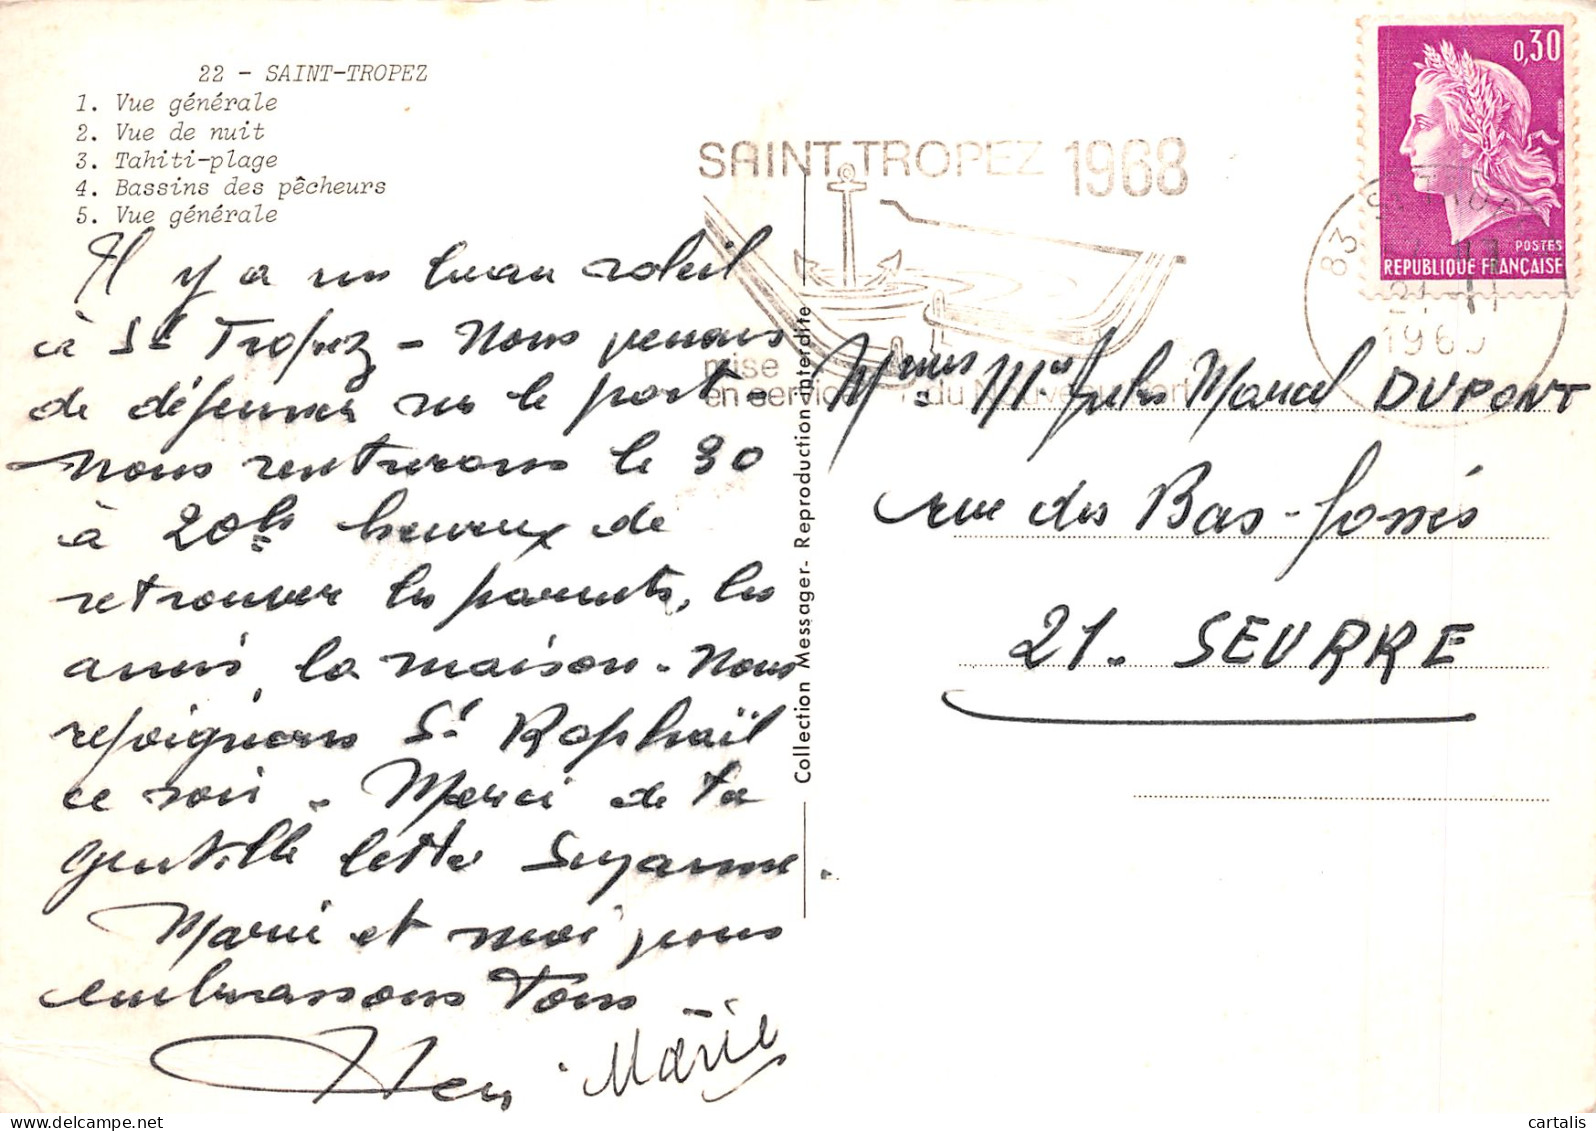 22 - SAINT-TROPEZ
1. Vue générale
2. Vue de nuit
3. Tahiti-plage
4. Bassins des pêcheurs
5. Vue générale
Il y a un beau soleil
à St Tropez - Nous venons
de déjeuner sur le port -
Nous rentrerons le 30
à 20h heureux de
retrouver les parents, les
amis, la maison - Nous
rejoignons St Raphaël
ce soir. Merci de la
gentille lettre Suzanne.
Marie et moi vous
embrassons Tous
Marie
Collection Messager- Reproduction interdite
SAINT TROPEZ 1968
mise
en service du Nouveau Port
0,30
POSTES
REPUBLIQUE FRANÇAISE
83
21 -
196
Jules Marcel DUPONT
rue des Bas-fossés
21. SEURRE
delcampe.net
cartalis